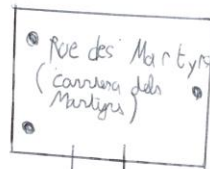 Rue des Martyrs
(carriera dels
Martirs)